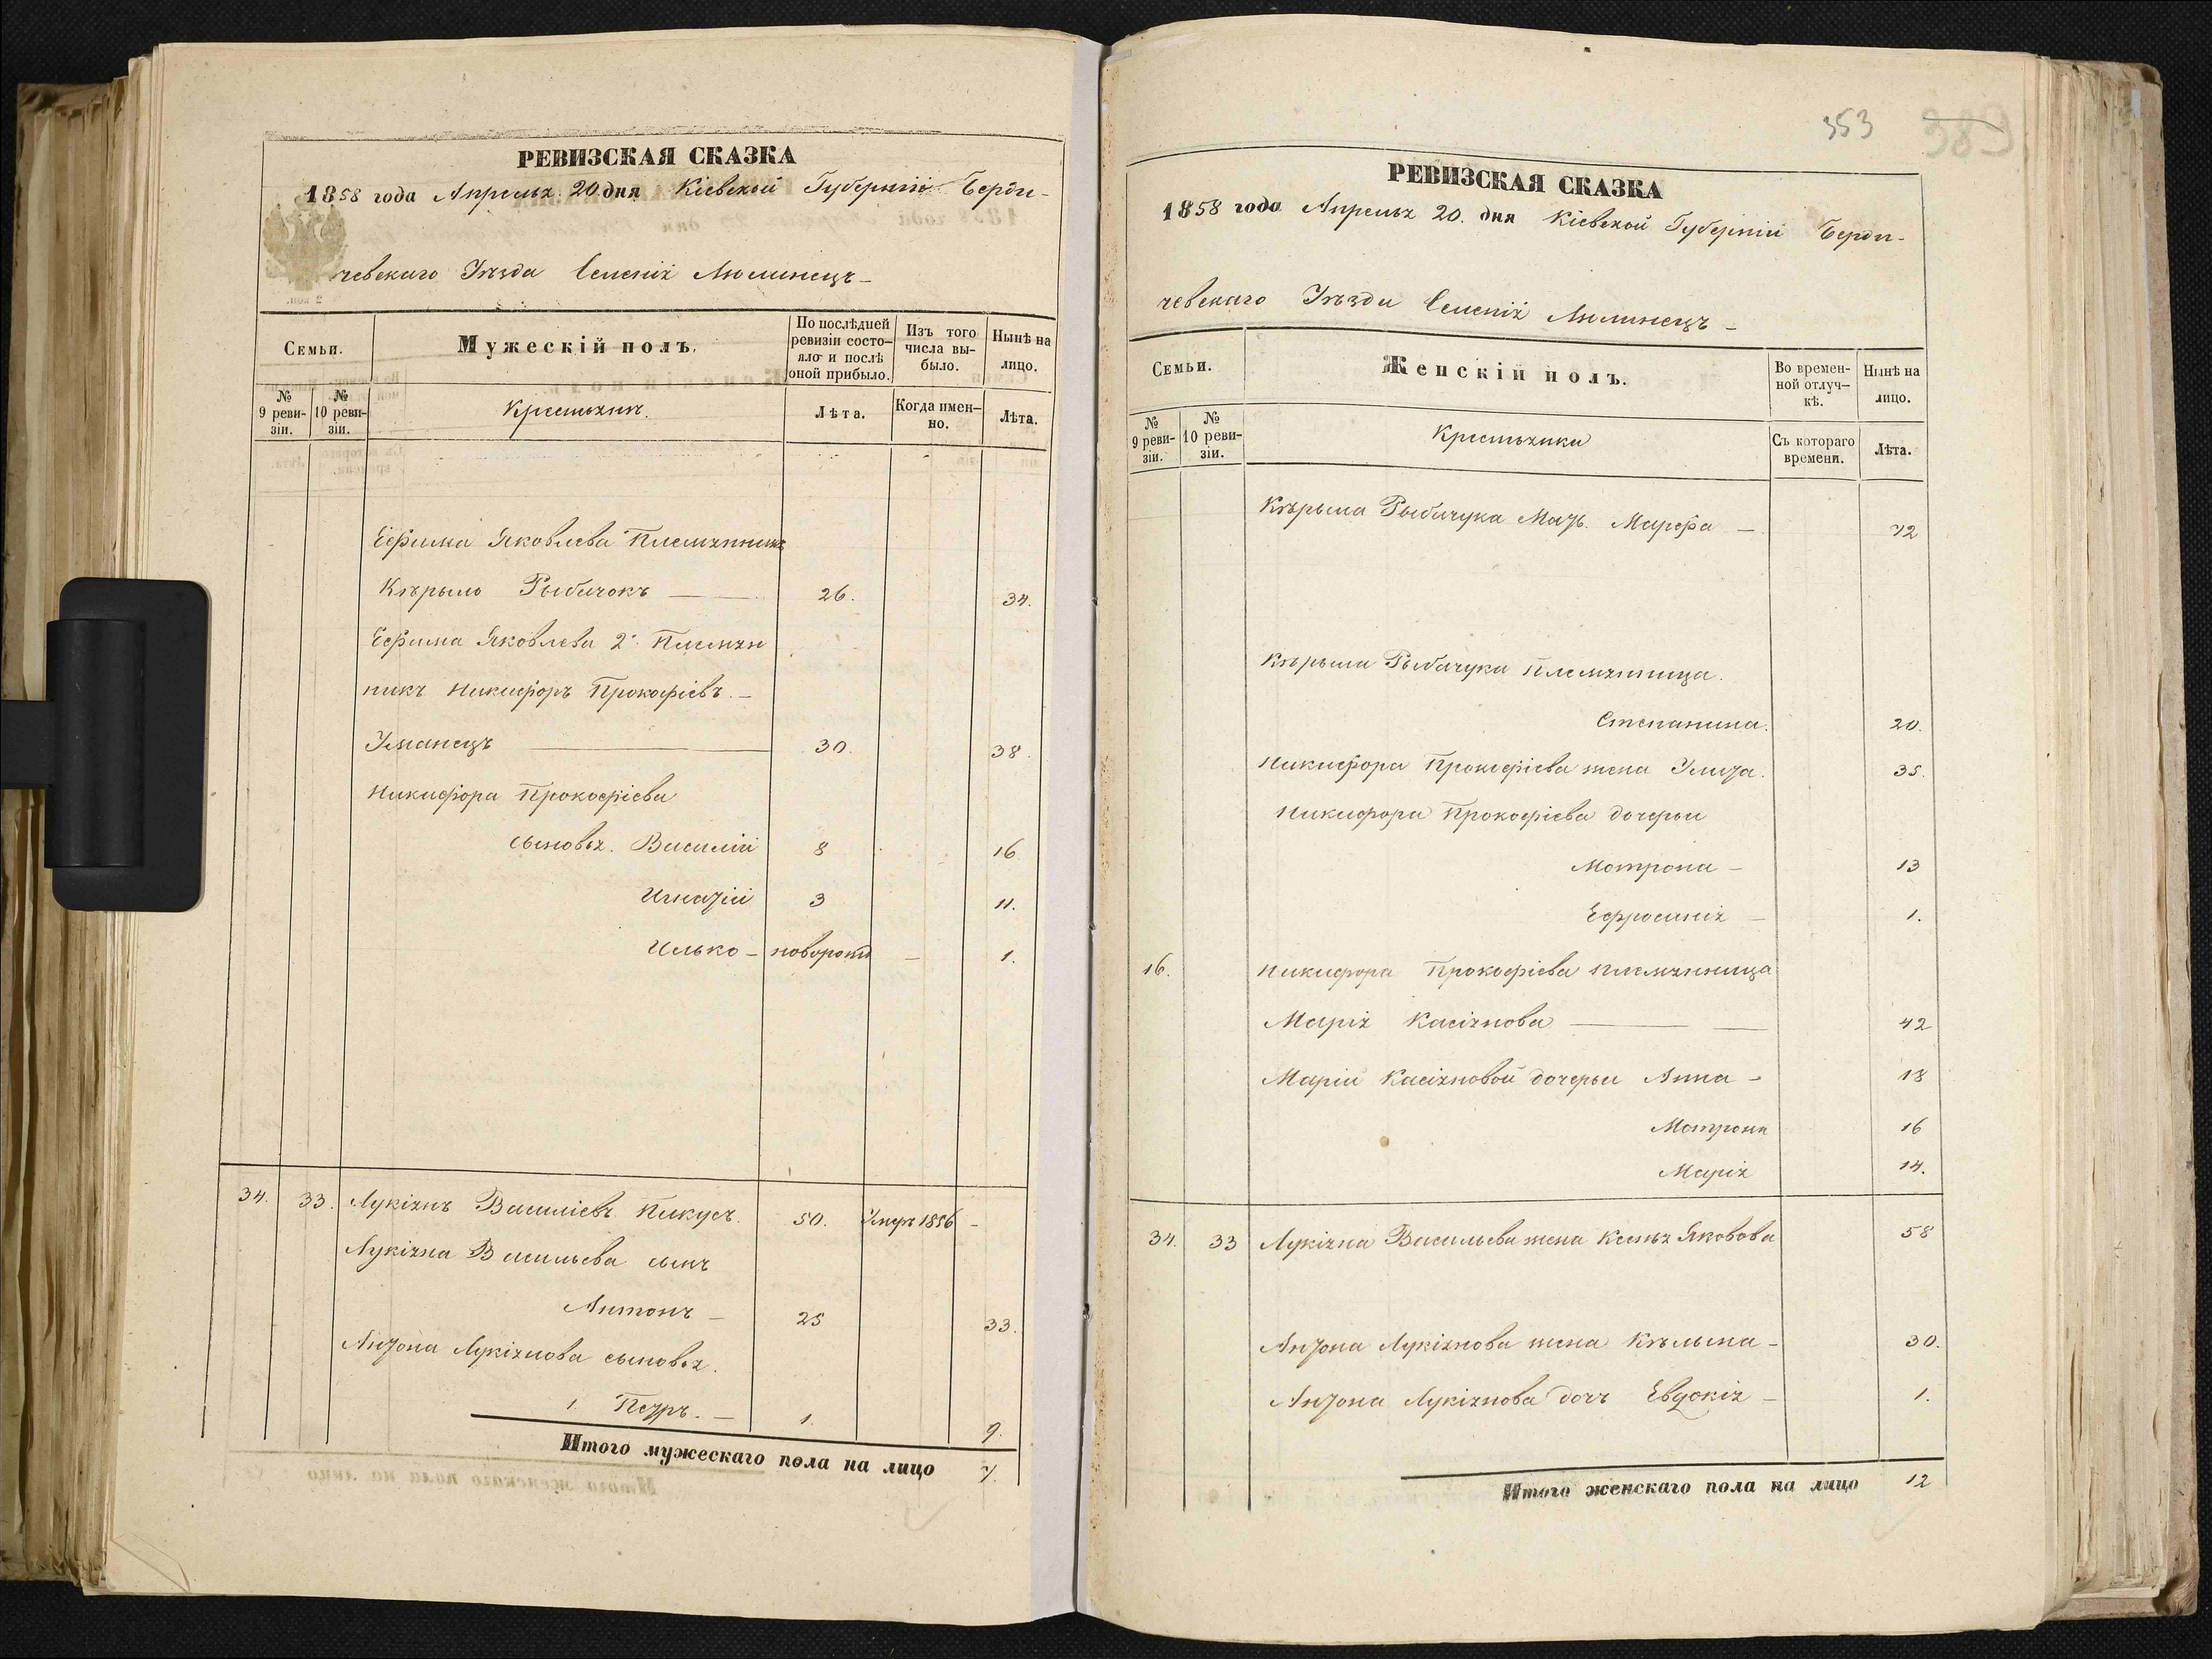 РЕВИЗСКАЯ СКАЗКА
1858 года Апреля 20 дня Кіевской Губерніи Берди-
чевскаго Уѣзда Селенія Люлинецъ-
Семьи.
Мужескій полъ.
По послѣдней ревизіи состо-
яло и послѣ оной прибыло.
Изъ того числа вы-
было.
Нынѣ на лицо.
№ 9 реви-
зіи.
№ 10 реви-
зіи.
Крестьянъ.
Лѣта.
Когда имен-
но.
Лѣта.
Ефима Яковлева Племянникъ
Кѣрыло Рыбачокъ — 26. 34.
Ефима Яковлева 2й Племян
никъ Никифоръ Прокофіевъ. -
Уманецъ — 30. 38.
Никифора Прокофіева
сыновья. Василій 8 16
Игнатій 3 11.
Илько - новорожд — 1.
34. 33. Лукіянъ Василіевъ Пикусъ. 50. Умеръ 1856 -
Лукіяна Васильева сынъ
Антонъ - 25 33.
Антона Лукіянова сыновья.
1. Петръ. - 1. 9.
Итого мужескаго пола на лицо 7.
353
389
РЕВИЗСКАЯ СКАЗКА
1858 года Апреля 20. дня Кіевской Губерніи Берди-
чевскаго Уѣзда Селенія Люлинецъ -
Семьи.
Женскій полъ.
Во времен-
ной отлуч-
кѣ.
Нынѣ на лицо.
№ 9 реви-
зіи.
№ 10 реви-
зіи.
Крестьянки
Съ котораго времени.
Лѣта.
Кѣрыла Рыбачука Мать Марфа — 72
Кѣрыла Рыбачука Племянница.
Степанина. 20.
Никифора Прокофіева жена Улита. 35.
Никифора Прокофіева дочери
Мотрона - 13
Ефросинія - 1.
16. Никифора Прокофіева племянница
Марія Касіянова — 42
Маріи Касіяновой дочери Анна - 18
Мотрона 16
Марія 14.
34. 33 Лукіяна Васильева жена Ксенья Яковова 58
Антона Лукіянова жена Кѣлына - 30.
Антона Лукіянова дочь Евдокія - 1.
Итого женскаго пола на лицо 12